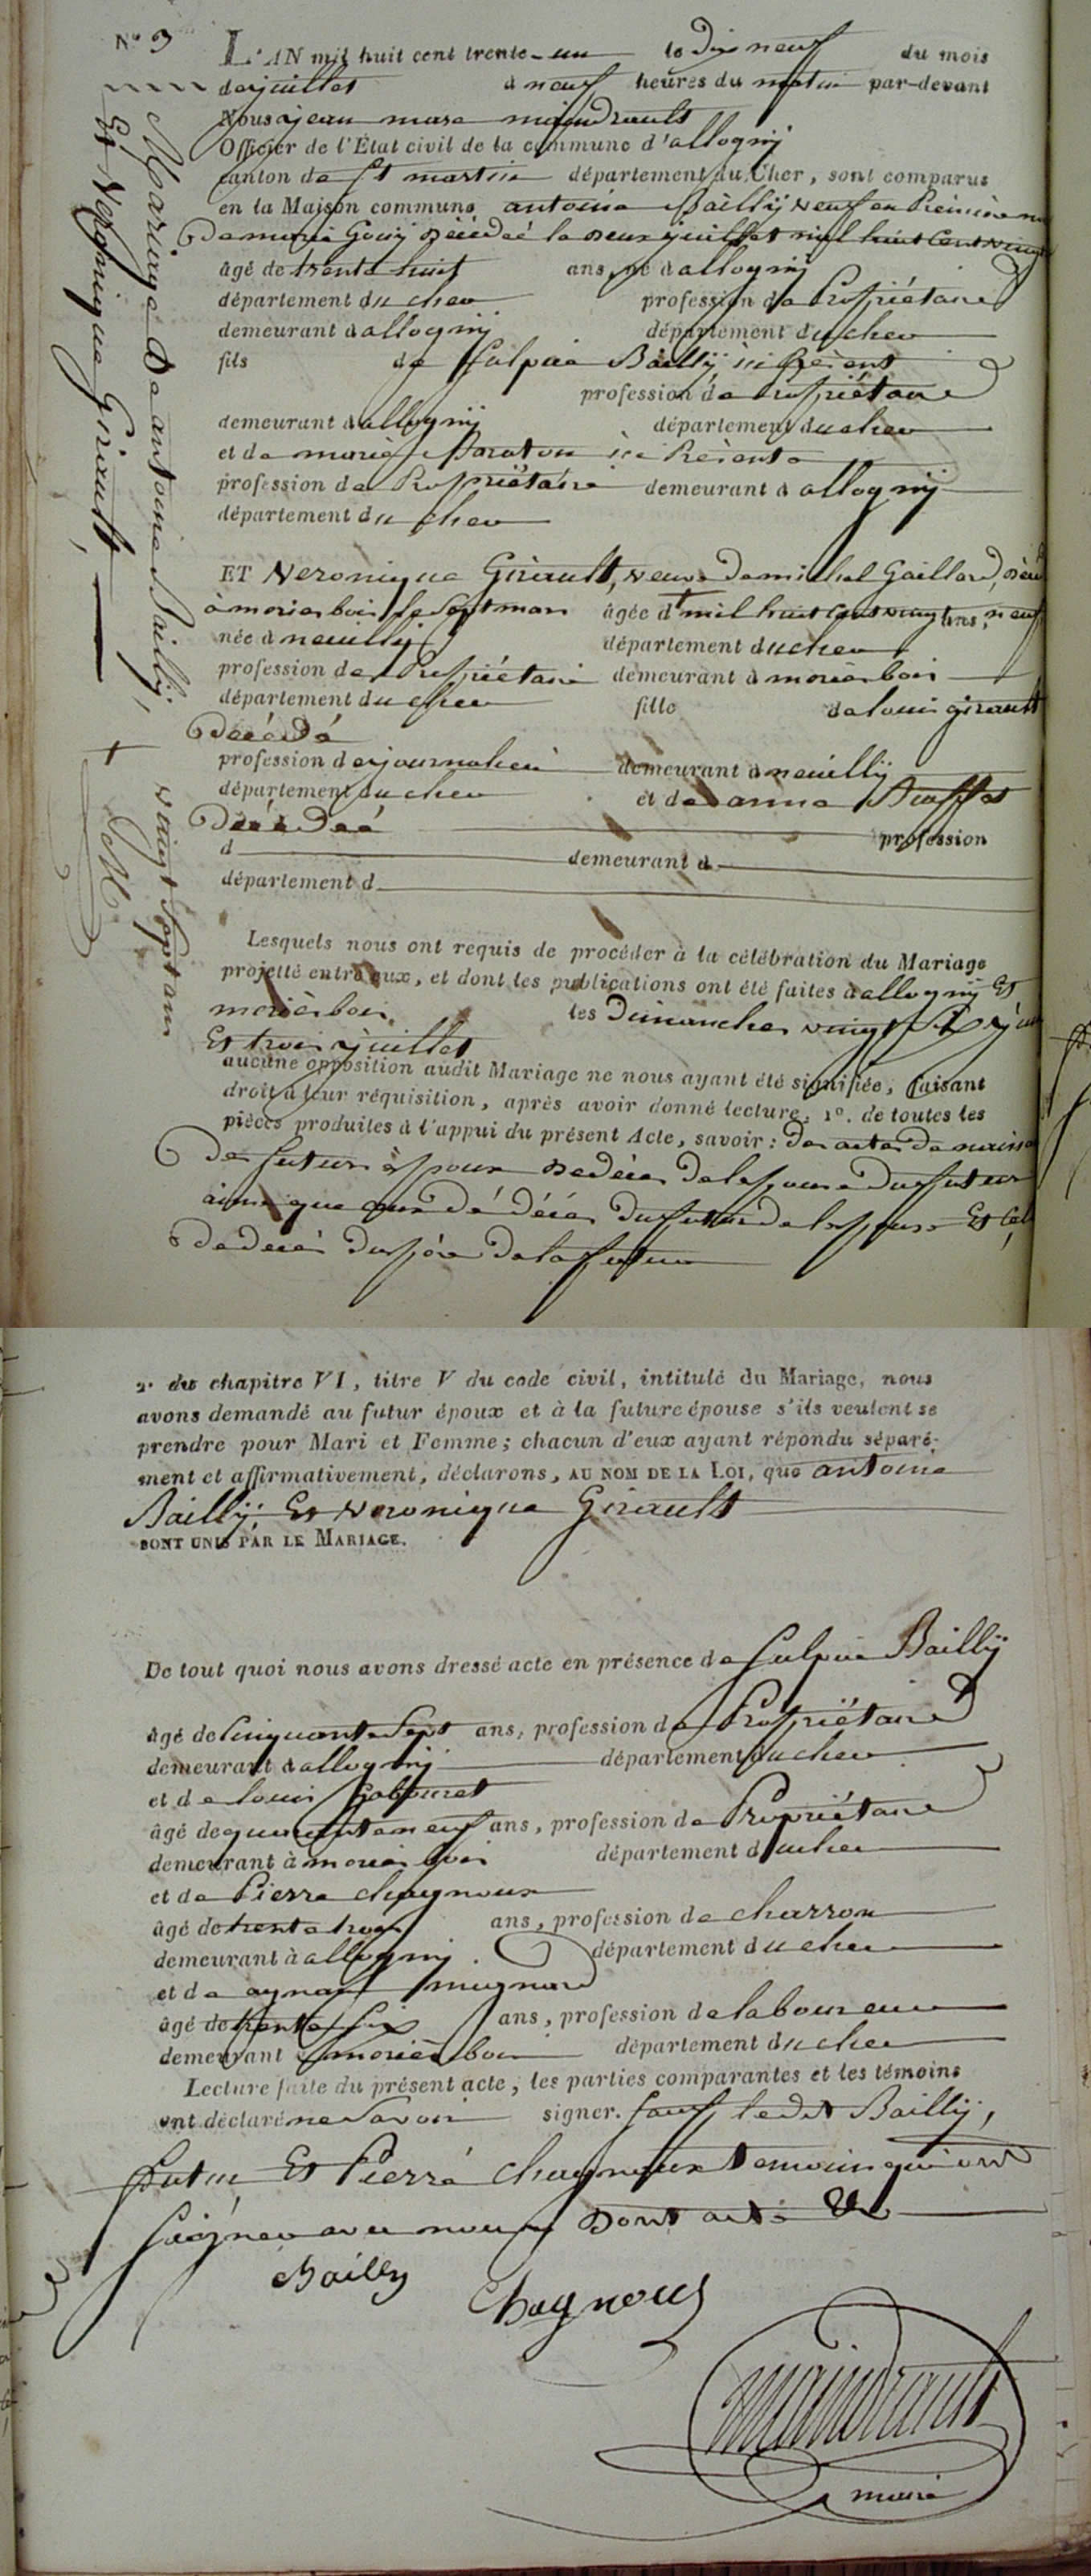 N° 9
Mariage De antoine Bailly,
Et Veronique Girault,
+ vingt sept ans
L'AN mil huit cent trente-un le Dix neuf du mois
de juillet à neuf heures du matin par-devant
Nous jean marc maindrault
Officier de l'État civil de la commune d'allogny
canton de St martin département du Cher, sont comparus
en la Maison commune antoine Bailly veuf en Premiere
De marie Gouy décédeé le deux juillet mil huit Cent vingt
âgé de trente huit ans, né à allogny
département du cher profession de Propriétaire
demeurant à allogny département du cher
fils de Sulpice Bailly ici Présent
profession de Propriétaire
demeurant à allogny département du cher
et de marie ici Présente
profession de Propriétaire demeurant à allogny
département du cher
ET Veronique Girault, veuve De michel Gaillard,
à morier bois le Sept mars âgée d + mil huit Cent vingt ans, neuf
née à neuilly département du cher
profession de Propriétaire demeurant à morièrbois
département du cher fille de louis girault
Décédé
profession de journalier demeurant à neuilly
département du cher et de anne
Décédeé profession
d demeurant à
département d
Lesquels nous ont requis de procéder à la célébration du Mariage
projetté entre eux, et dont les publications ont été faites à allogny Et
morièrbois les Dimanches vingt Six juin
Et trois juillet
aucune opposition audit Mariage ne nous ayant été signifiée, faisant
droit à leur réquisition, après avoir donné lecture, 1°. de toutes les
pièces produites à l'appui du présent Acte, savoir: Des actes De naiss
Des futurs époux De décès De lespouse Du futur
ainsi que De décès Du De lespouse Et Cel
De decès Du père De la future
2° du chapitre VI, titre V du code civil, intitulé du Mariage, nous
avons demandé au futur époux et à la future épouse s'ils veulent se
prendre pour Mari et Femme; chacun d'eux ayant répondu séparé-
ment et affirmativement, déclarons, AU NOM DE LA LOI, que antoine
Bailly Et Veronique Girault
SONT UNIS PAR LE MARIAGE.
De tout quoi nous avons dressé acte en présence de Sulpice Bailly
âgé de Cinquante Sept ans, profession de Propriétaire
demeurant à allogny département du cher
et de louis Gabouret
âgé de quarante neuf ans, profession de Propriétaire
demeurant à morièr bois département du cher
et de Pierre chagnoux
âgé de trente trois ans, profession de charron
demeurant à allogny département du cher
et de aignan mignard
âgé de trente Six ans, profession de laboureur
demeurant à morièrbois département du cher
Lecture faite du présent acte, les parties comparantes et les témoins
ont déclaré ne Savoir signer. Sauf ledit Bailly,
futur Et Pierre chagnoux temoin qui ont
Soigner avec nous Dont acte &
Bailly
Chagnoux
maindrault
maire